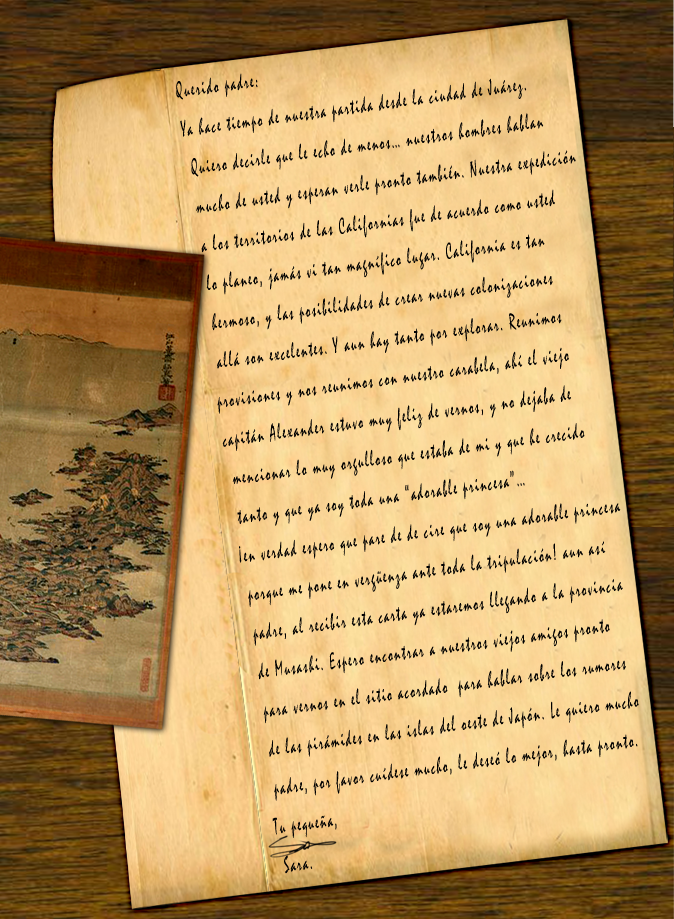 Querido padre:
Ya hace tiempo de nuestra partida desde la ciudad de Juárez.
Quiero decirle que le echo de menos... nuestros hombres hablan
mucho de usted y esperan verle pronto también. Nuestra expedición
a los territorios de las Californias fue de acuerdo como usted
lo planeo, jamás vi tan magnífico lugar. California es tan
hermoso, y las posibilidades de crear nuevas colonizaciones
allá son excelentes. Y aun hay tanto por explorar. Reunimos
provisiones y nos reunimos con nuestro carabela, ahí el viejo
capitán Alexander estuvo muy feliz de vernos, y no dejaba de
mencionar lo muy orgulloso que estaba de mi y que he crecido
tanto y que ya soy toda una "adorable princesa"...
¡en verdad espero que pare de de cire que soy una adorable princesa
porque me pone en vergüenza ante toda la tripulación! aun así
padre, al recibir esta carta ya estaremos llegando a la provincia
de Musashi. Espero encontrar a nuestros viejos amigos pronto
para vernos en el sitio acordado para hablar sobre los rumores
de las pirámides en las islas del oeste de Japón. Le quiero mucho
padre, por favor cuídese mucho, le deseó lo mejor, hasta pronto.
Tu pequeña,
Sara.